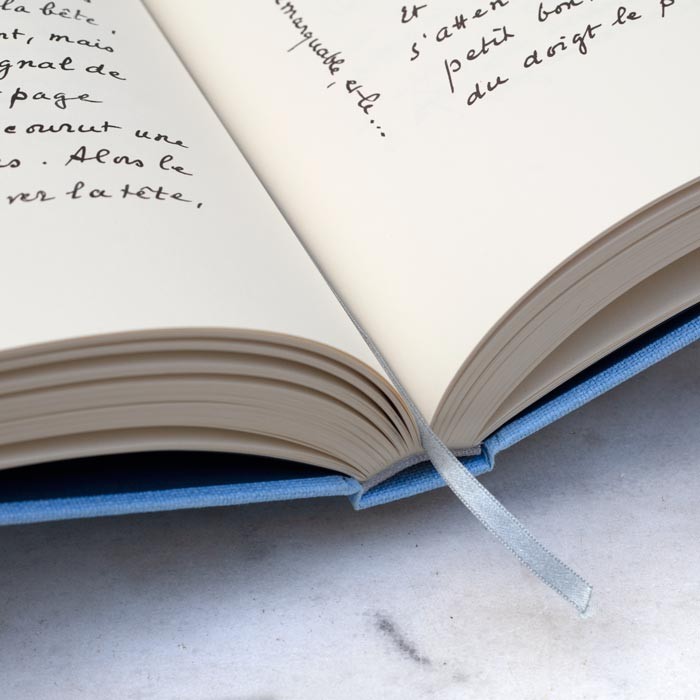 la bête.
nt, mais
gnal de
page
courut une
s. Alors le
ver la tête,
marquable, et le...
Et
s'atten
petit bon
du doigt le p